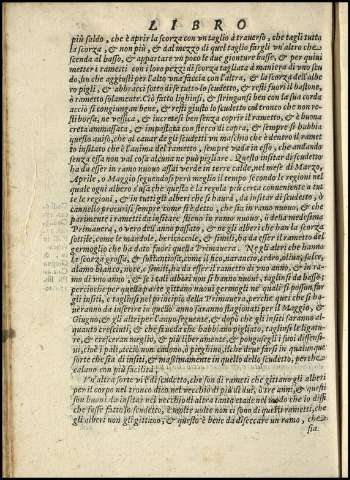 LIBRO
più saldo, che è aprir la scorza con un taglio à trauerso, che tagli tutta
la scorza, & non più, & dal mezzo di quel taglio fargli un'altro che
scenda al basso, & appartare un poco le due gionture basse, & per quiui
metter i rametti con i loro pezzi di scorza tagliata à maniera di uno scu
do, in che aggiusti per l'alto una faccia con l'altra, & la scorza dell'albe
ro pigli, & abbracci sotto di se tutto lo scudetto, & resti fuori il bastone,
ò rametto solamente. Ciò fatto leghisi, & stringansi ben con la sua corda
acciò si congiungan bene, & resti giusto lo scudetto col tronco che non re-
sti borsa, ne vessica, & incretesi ben se può coprire il rametto, & è buona
creta ammassata, & impastata con sterco di capra, & sempre si habbia
questo auiso, che al cauar de gli scudetti un maschio che è dentro il ramet
to insitato che è l'anima del rametto, sempre vada in esso, che andando
senza essa non val cosa alcuna ne può pigliare. Questo insitar di scudetto
ha da esser in ramo nuouo assai verde in terre calde, nel mese di Marzo,
Aprile, ò Maggio seguendosi però meglio il tempo secondo le regioni nel
quale ogni albero s'usa che questa è la regola più certa conueniente a tut
te le regioni, & in tutti gli alberi che si hauerà, da insitar di scudetto, ò
cannello procurisi sempre come si è detto, che sia in ramo nuouo, & che
parimente i rametti da insitare sieno in ramo nuouo, ò della medesima
Primauera, o vero dell'anno passato, & ne gli alberi che han la scorza
sottile, come le mandole, bericoccole, & simili, ha da esser il rametto del
germoglio che ha dato fuori quella Primauera. Ne gli altri che hanno
la scorza grossa, & sustantiosa, come il fico, narancio, cedro, oliua, salce,
alamo bianco, noce, & simili, ha da esser il rametto di vno anno, & in ra-
mo di vno anno, & se i tali alberi non gli hanno nuoui, taglinsi da basso,
percioche per quella parte gittano nuoui germogli ne' quali si posson far
gli insiti, e taglinsi nel principio della Primauera, perche quei che si ha-
ueranno da insitare in questo anno saranno stagionati per il Maggio, &
Giugno, & gli altri per l'anno seguente, & dopò che gli insiti saranno al-
quanto cresciuti, & che si veda che habbiano pigliato, taglinsi le ligatu-
re, & cresceran meglio, & più liberamente, & pongasegli i suoi difensi-
ui, cioè i pali, acciò non cadano, ò pieghino, ilche deue farsi in qualunque
sorte che sia di insiti, & massimamente in quello dello scudetto, perche
calano con più facilità.
Vn'altra sorte vi è di scudetto, che son di rametti che gittano gli alberi
per il corpo nel tronco dico nel vecchio di più di due, ò tre anni, & questi
son buoni da insitar nel vecchio di altra tanta etade nel modo che io dissi
che fusse fatto lo scudetto, & molte uolte non ci sono di questi rametti, che
gli alberi non gli gittano, & questo è bene da cauare un ramo, che
sia